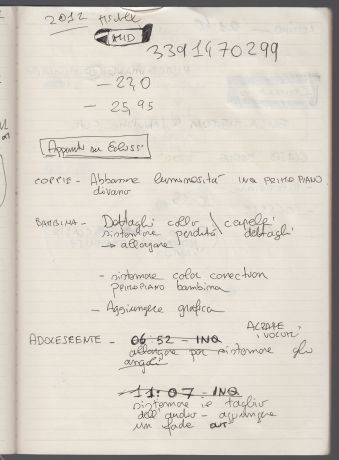 2012
AUD
3391470299
- 220
- 25,95
Appunti su
COPPIE - Abbassare luminosità INQ PRIMO PIANO
divano
BAMBINA - Dettagli collo \ capelli
sistemare perdita dettagli
→ allargare
- sistemare color correction
PRIMO PIANO bambina
- Aggiungere grafica
ADOLESCENTE - 06 52 - INQ
ALZARE
allargare per sistemare gli
angoli
11:07 - INQ
sistemare il taglio
dell'audio - aggiungere
un fade